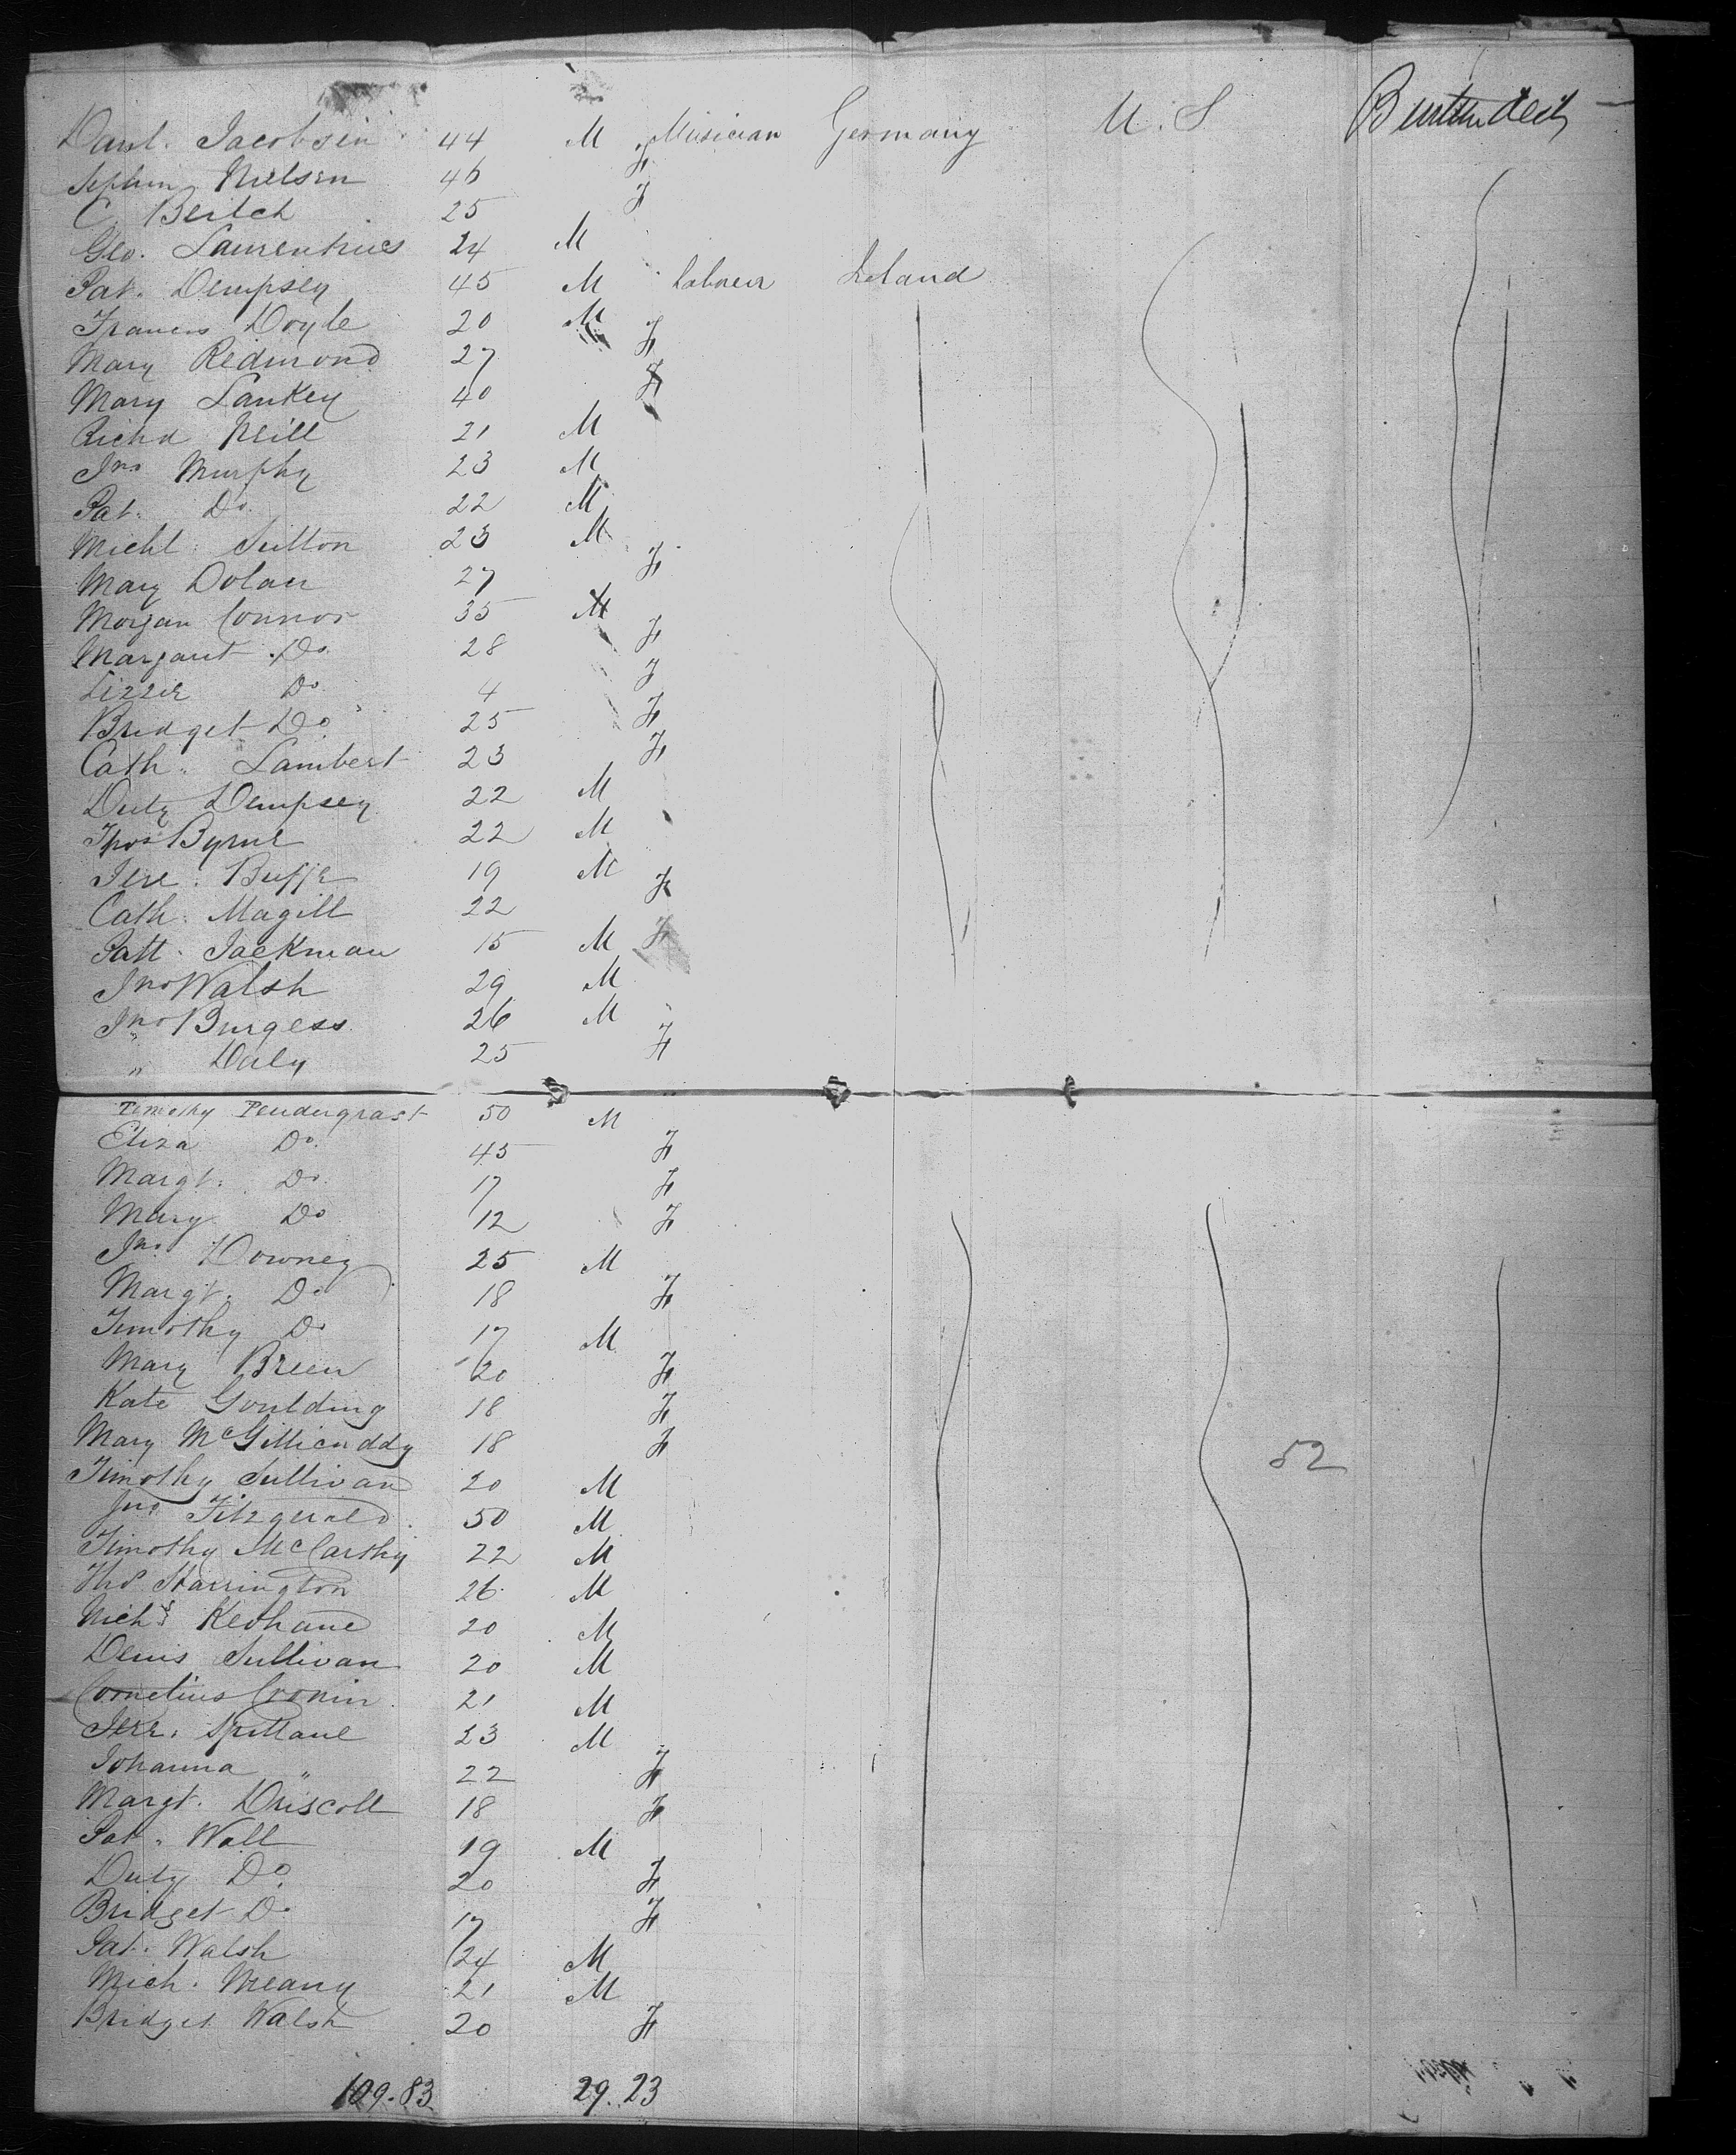 Danl. Jacobsen 44 M Musician Germany U.S
Sephim Nielsen 46 F
C. Beitch 25 F
Geo. Laurentries 24 M
Pat. Dempsey 45 M Laborer Ireland
Francis Doyle 20 M
Mary Redmond 27 F
Mary Lankey 40 F
Richd Neill 21 M
Jno Murphy 23 M
Pat. Do. 22 M
Michl. Sutton 23 M
Mary Dolan 27 F
Morgan Connor 35 M
Margaret Do. 28 F
Lizzie Do. 4 F
Bridget Do. 25 F
Cath. Lambert 23 F
Duty Dempsey 22 M
Thos Byrne 22 M
Jere. Buffe 19 M
Cath. Magill 22 F
Patt. Jackman 15 M
Jno Walsh 29 M
Jno Burgess 26 M
" Daly 25 F
Timothy Pendergrast 50 M
Eliza Do. 45 F
Margt. Do. 17 F
Mary Do 12 F
Jno. Downey 25 M
Margt. Do 18 F
Timothy Do 17 M
Mary Breen 20 F
Kate Goulding 18 F
Mary McGillicuddy 18 F
52
Timothy Sullivan 20 M
Jno. Fitzgerald 50 M
Timothy McCarthy 22 M
Thos Harrington 26 M
Michl Keohane 20 M
Denis Sullivan 20 M
Cornelius Cronin 21 M
Jere. Spillane 23 M
Johanna " 22 F
Margt. Driscoll 18 F
Pat. Wall 19 M
Duty Do. 20 F
Bridget Do. 17 F
Pat. Walsh 24 M
Mich. Meany 21 M
Bridget Walsh 20 F
109.83 29.23